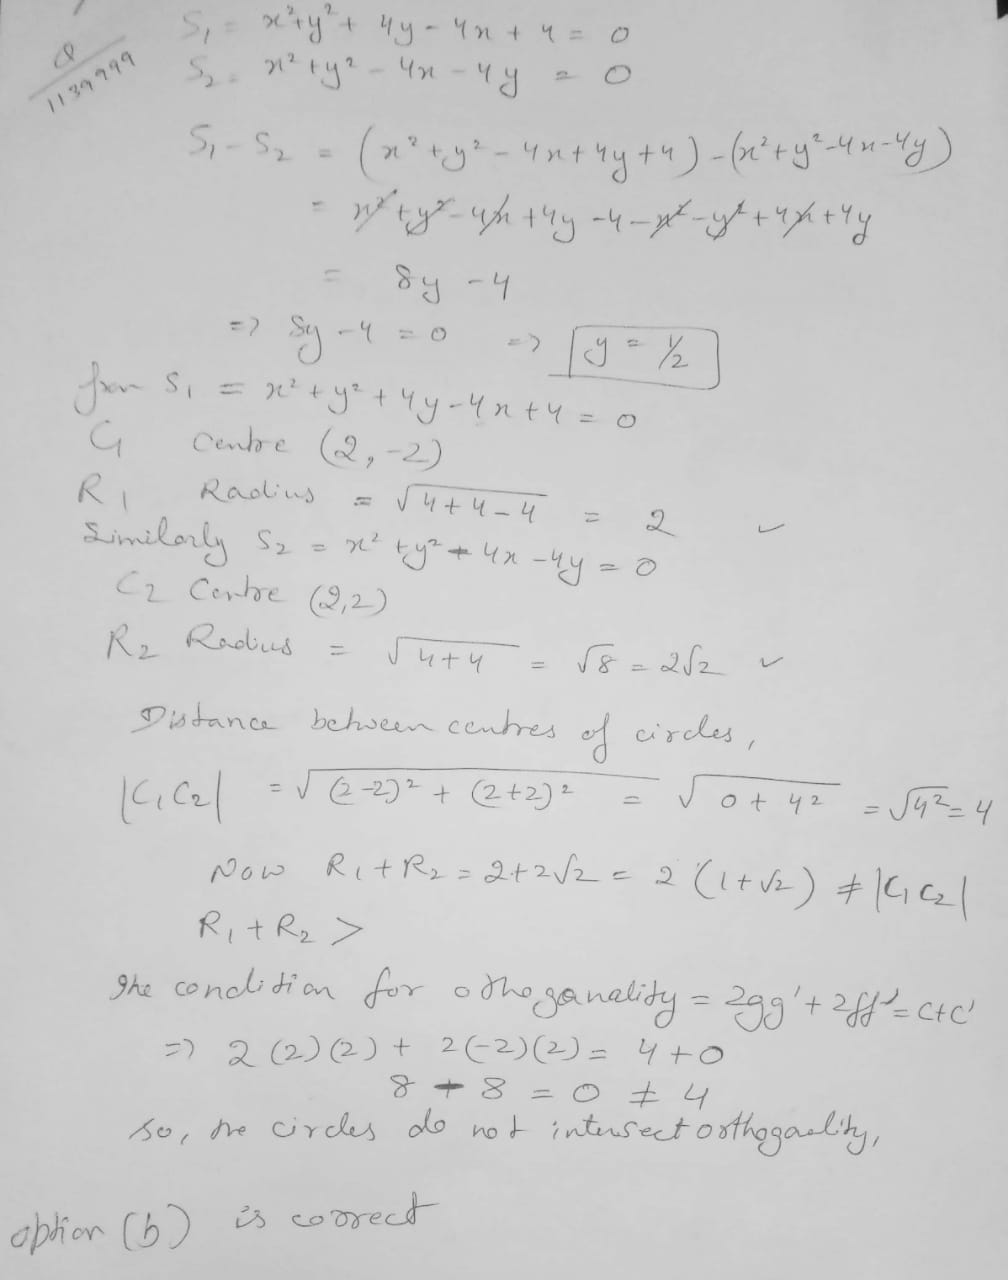 Q
1139999
S₁ = x²+y²+ 4y - 4x + 4 = 0
S₂ = x²+y² - 4x - 4y = 0
S₁ - S₂ = (x²+y² - 4x+4y+4) - (x²+y²-4x-4y)
= x²+y²-4x+4y-4-x²-y²+4x+4y
= 8y - 4
=> 8y - 4 = 0 => y = ½
from S₁ = x²+y²+4y-4x+4 = 0
C₁ Centre (2, -2)
R₁ Radius = √4+4-4 = 2 ✓
Similarly S₂ = x²+y²+4x-4y = 0
C₂ Centre (2,2)
R₂ Radius = √4+4 = √8 = 2√2 ✓
Distance between centres of circles,
|C₁C₂| = √(2-2)² + (2+2)² = √0+4² = √4² = 4
Now R₁+R₂ = 2+2√2 = 2(1+√2) ≠ |C₁C₂|
R₁+R₂ >
The condition for othoganality = 2gg'+2ff' = c+c'
=> 2(2)(2) + 2(-2)(2) = 4+0
8 + 8 = 0 ≠ 4
so, the circles do not intersect orthogaality,
option (b) is correct